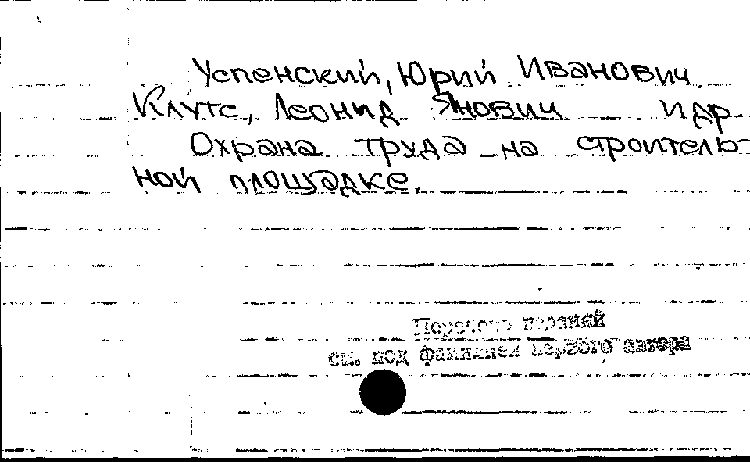 Успенский, Юрий Иванович
Клутс, Леонид Янович и др
Охрана труда на строитель-
ной площадке.
Перечень изданий
см. под фамилией первого автора